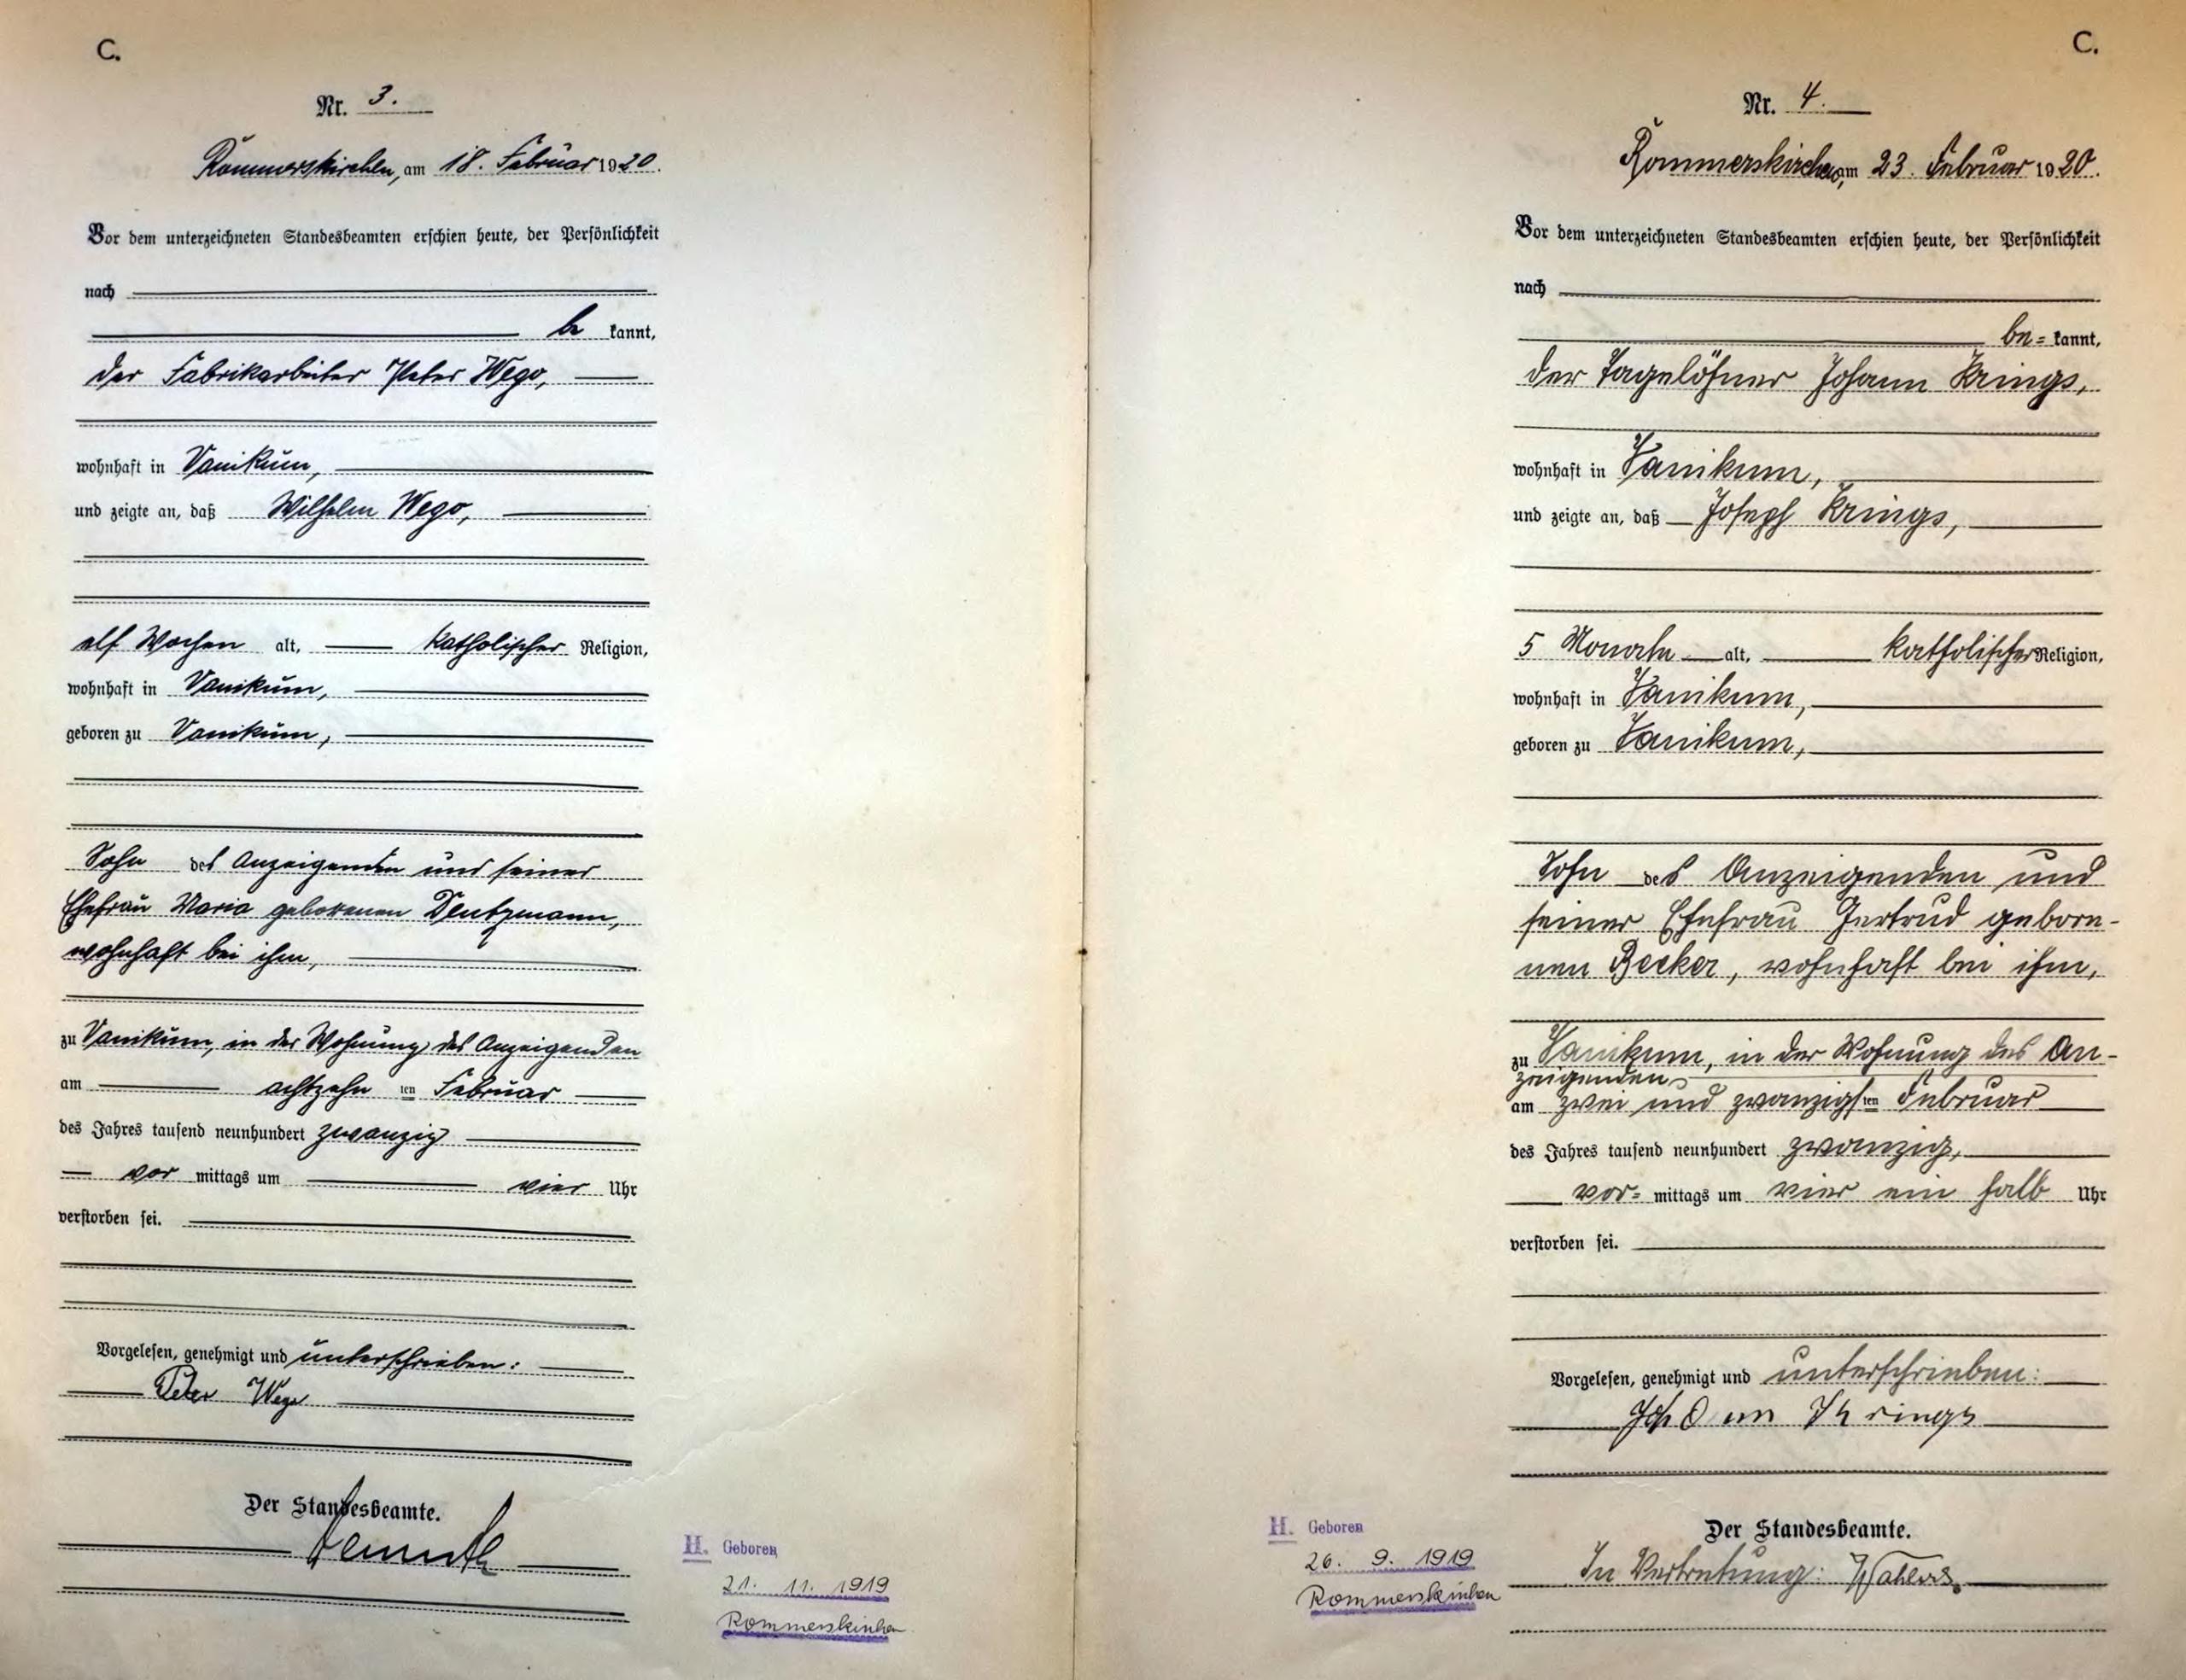 C.
Nr. 3.
Rommerskirchen, am 18. Februar 1920.
Vor dem unterzeichneten Standesbeamten erschien heute, der Persönlichkeit
nach
be kannt,
der Fabrikarbeiter Peter Wego,
wohnhaft in Vanikum,
und zeigte an, daß Wilhelm Wego,
elf Wochen alt, katholischer Religion,
wohnhaft in Vanikum,
geboren zu Vanikum,
Sohn des Anzeigenden und seiner
Ehefrau Maria geborenen Deutzmann,
wohnhaft bei ihm,
zu Vanikum, in der Wohnung des Anzeigenden
am achtzehn ten Februar
des Jahres tausend neunhundert zwanzig
vor mittags um vier Uhr
verstorben sei.
Vorgelesen, genehmigt und unterschrieben:
Peter Wego
Der Standesbeamte.
H. Geboren
21. 11. 1919
Rommerskirchen
C.
Nr. 4.
Rommerskirchen, am 23. Februar 1920.
Vor dem unterzeichneten Standesbeamten erschien heute, der Persönlichkeit
nach
be= kannt,
der Tagelöhner Johann Krings,
wohnhaft in Vanikum,
und zeigte an, daß Joseph Krings,
5 Monate alt, katholischer Religion,
wohnhaft in Vanikum,
geboren zu Vanikum,
Sohn des Anzeigenden und
seiner Ehefrau Gertrud gebore-
nen Becker, wohnhaft bei ihm,
zu Vanikum, in der Wohnung des An-
zeigenden
am zwei und zwanzigsten Februar
des Jahres tausend neunhundert zwanzig,
vor= mittags um vier ein halb Uhr
verstorben sei.
Vorgelesen, genehmigt und unterschrieben:
Johann Krings
Der Standesbeamte.
In Vertretung:
H. Geboren
26. 9. 1919
Rommerskirchen